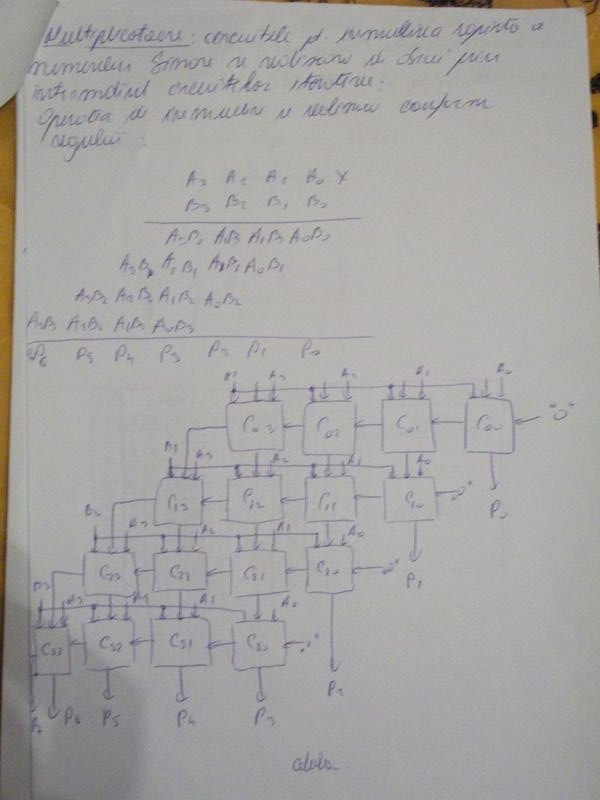 Multiplicatoare: circuitele pt. înmulțirea rapidă a
numerelor binare se realizează de obicei prin
intermediul circuitelor iterative.
Operația de înmulțire se realizează conform
regulii:
A3 A2 A1 A0 X
B3 B2 B1 B0
A3B0 A2B0 A1B0 A0B0
A3B1 A2B1 A1B1 A0B1
A3B2 A2B2 A1B2 A0B2
A3B3 A2B3 A1B3 A0B3
P6 P5 P4 P3 P2 P1 P0
A3 A2 A1 A0
C03 C02 C01 C00 "0"
B1 A3 A2 A1 A0
C13 C12 C11 C10 "0" P0
B2 A3 A2 A1 A0
C23 C22 C21 C20 "0" P1
B3 A3 A2 A1 A0
C33 C32 C31 C30 "0"
P2
P7 P6 P5 P4 P3
celula